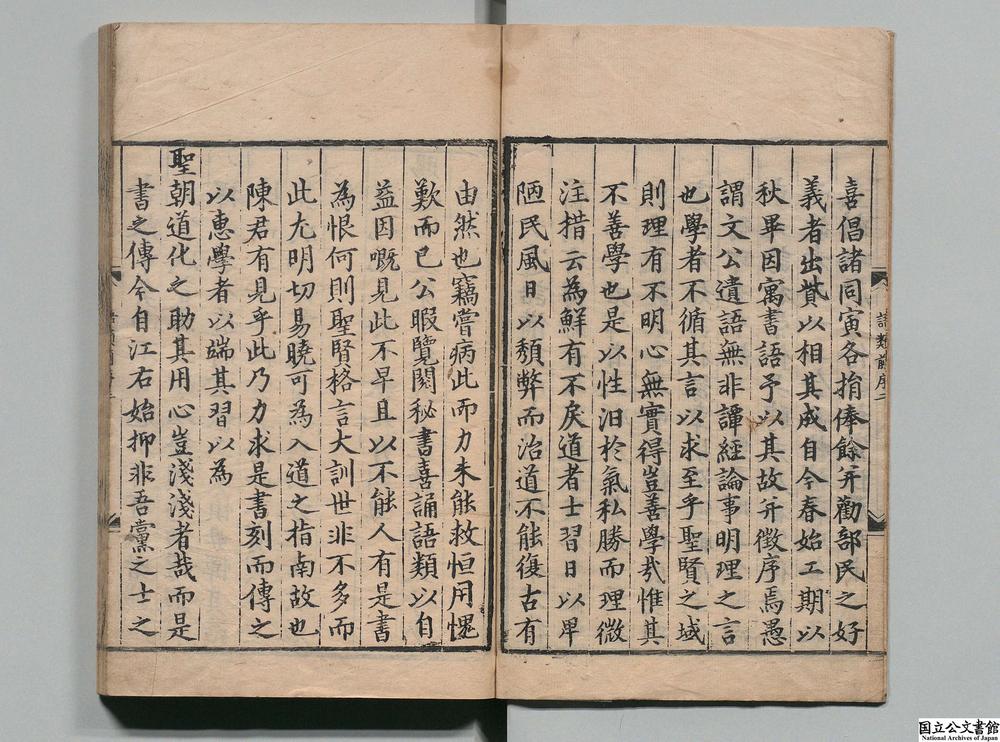 喜倡諸同寅各捐俸餘并勸部民之好
義者出貲以相其成自今春始工期以
秋畢因寓書語予以其故并徵序焉愚
謂文公遺語無非譚經論事明理之言
也學者不循其言以求至乎聖賢之域
則理有不明心無實得豈善學㢤惟其
不善學也是以性汩於氣私勝而理微
注措云為鮮有不戾道者士習日以畀
陋民風日以頽弊而治道不能復古有
由然也竊嘗病此而力未能救恒用愧
歎而已公暇覽閱秘書喜誦語類以自
益因嘅見此不早且以不能人有是書
為恨何則聖賢格言大訓世非不多而
此尤明切易曉可為入道之指南故也
陳君有見乎此乃力求是書刻而傳之
以惠學者以端其習以為
聖朝道化之助其用心豈淺淺者哉而是
書之傳今自江右始抑非吾黨之士之
國立公文書館
National Archives of Japan